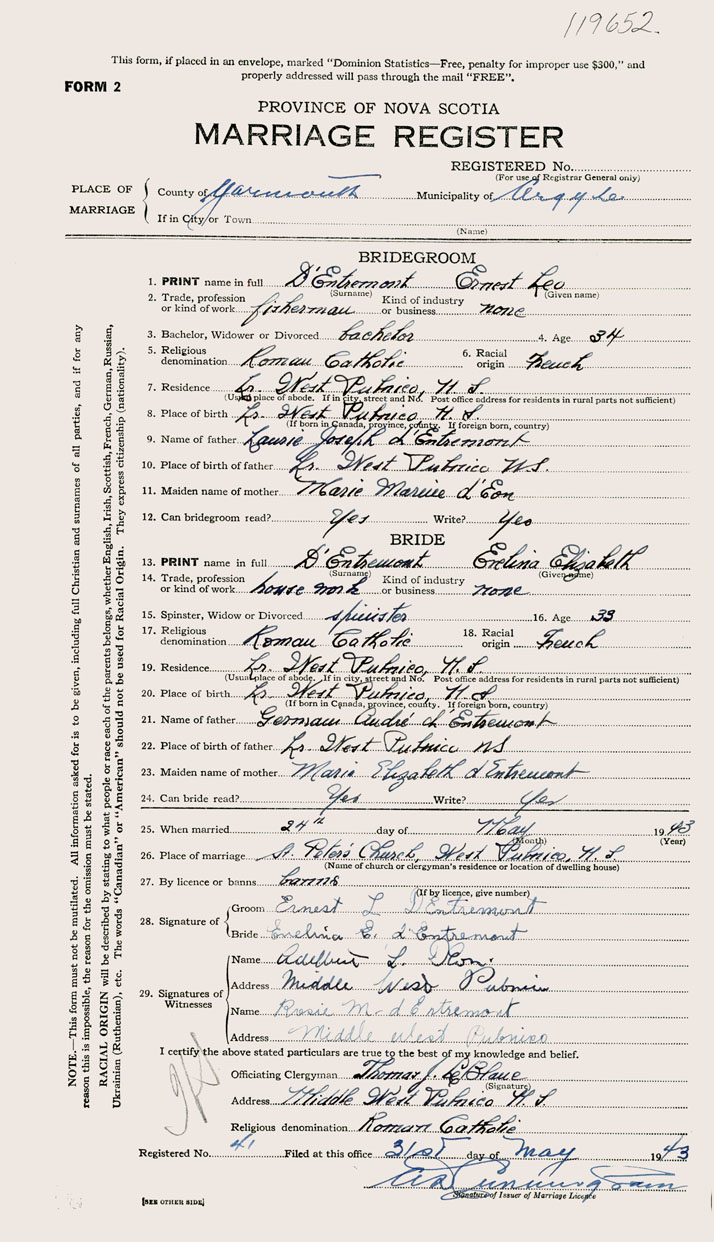 119652.
This form, if placed in an envelope, marked "Dominion Statistics—Free, penalty for improper use $300," and
properly addressed will pass through the mail "FREE".
FORM 2
PROVINCE OF NOVA SCOTIA
MARRIAGE REGISTER
REGISTERED No.
(For use of Registrar General only)
PLACE OF MARRIAGE
County of Yarmouth Municipality of Argyle
If in City or Town
(Name)
BRIDEGROOM
1. PRINT name in full D'Entremont Ernest Leo
(Surname) (Given name)
2. Trade, profession or kind of work fisherman Kind of industry or business none
3. Bachelor, Widower or Divorced bachelor 4. Age 34
5. Religious denomination Roman Catholic 6. Racial origin French
7. Residence Lr. West Pubnico, N. S.
(Usual place of abode. If in city, street and No. Post office address for residents in rural parts not sufficient)
8. Place of birth Lr. West Pubnico, N. S.
(If born in Canada, province, county. If foreign born, country)
9. Name of father Laurie Joseph d'Entremont
10. Place of birth of father Lr. West Pubnico N.S.
11. Maiden name of mother Marie d'Eon
12. Can bridegroom read? Yes Write? Yes
BRIDE
13. PRINT name in full D'Entremont Evelina Elizabeth
(Surname) (Given name)
14. Trade, profession or kind of work house work Kind of industry or business none
15. Spinster, Widow or Divorced spinister 16. Age 33
17. Religious denomination Roman Catholic 18. Racial origin French
19. Residence Lr. West Pubnico, N. S.
(Usual place of abode. If in city, street and No. Post office address for residents in rural parts not sufficient)
20. Place of birth Lr. West Pubnico, N. S.
(If born in Canada, province, county. If foreign born, country)
21. Name of father Germain André d'Entremont
22. Place of birth of father Lr. West Pubnico NS
23. Maiden name of mother Marie Elizabeth d'Entremont
24. Can bride read? Yes Write? Yes
25. When married 24th day of May 1943
(Month) (Year)
26. Place of marriage St. Peter's Church, West Pubnico, N. S.
(Name of church or clergyman's residence or location of dwelling house)
27. By licence or banns banns
(If by licence, give number)
28. Signature of
Groom Ernest L D'Entremont
Bride Evelina E. d'Entremont
29. Signatures of Witnesses
Name Adelbert L. D'Eon.
Address Middle West Pubnico
Name Rosie M. d'Entremont
Address Middle West Pubnico
I certify the above stated particulars are true to the best of my knowledge and belief.
Officiating Clergyman Thomas J. LeBlanc
(Signature)
Address Middle West Pubnico N. S.
Religious denomination Roman Catholic
Registered No. 41 Filed at this office 31st day of May 1943
Signature of Issuer of Marriage Licence
[SEE OTHER SIDE]
NOTE.—This form must not be mutilated. All information asked for is to be given, including full Christian and surnames of all parties, and if for any
reason this is impossible, the reason for the omission must be stated.
RACIAL ORIGIN will be described by stating to what people or race each of the parents belongs, whether English, Irish, Scottish, French, German, Russian,
Ukrainian (Ruthenian), etc. The words "Canadian" or "American" should not be used for Racial Origin. They express citizenship (nationality).